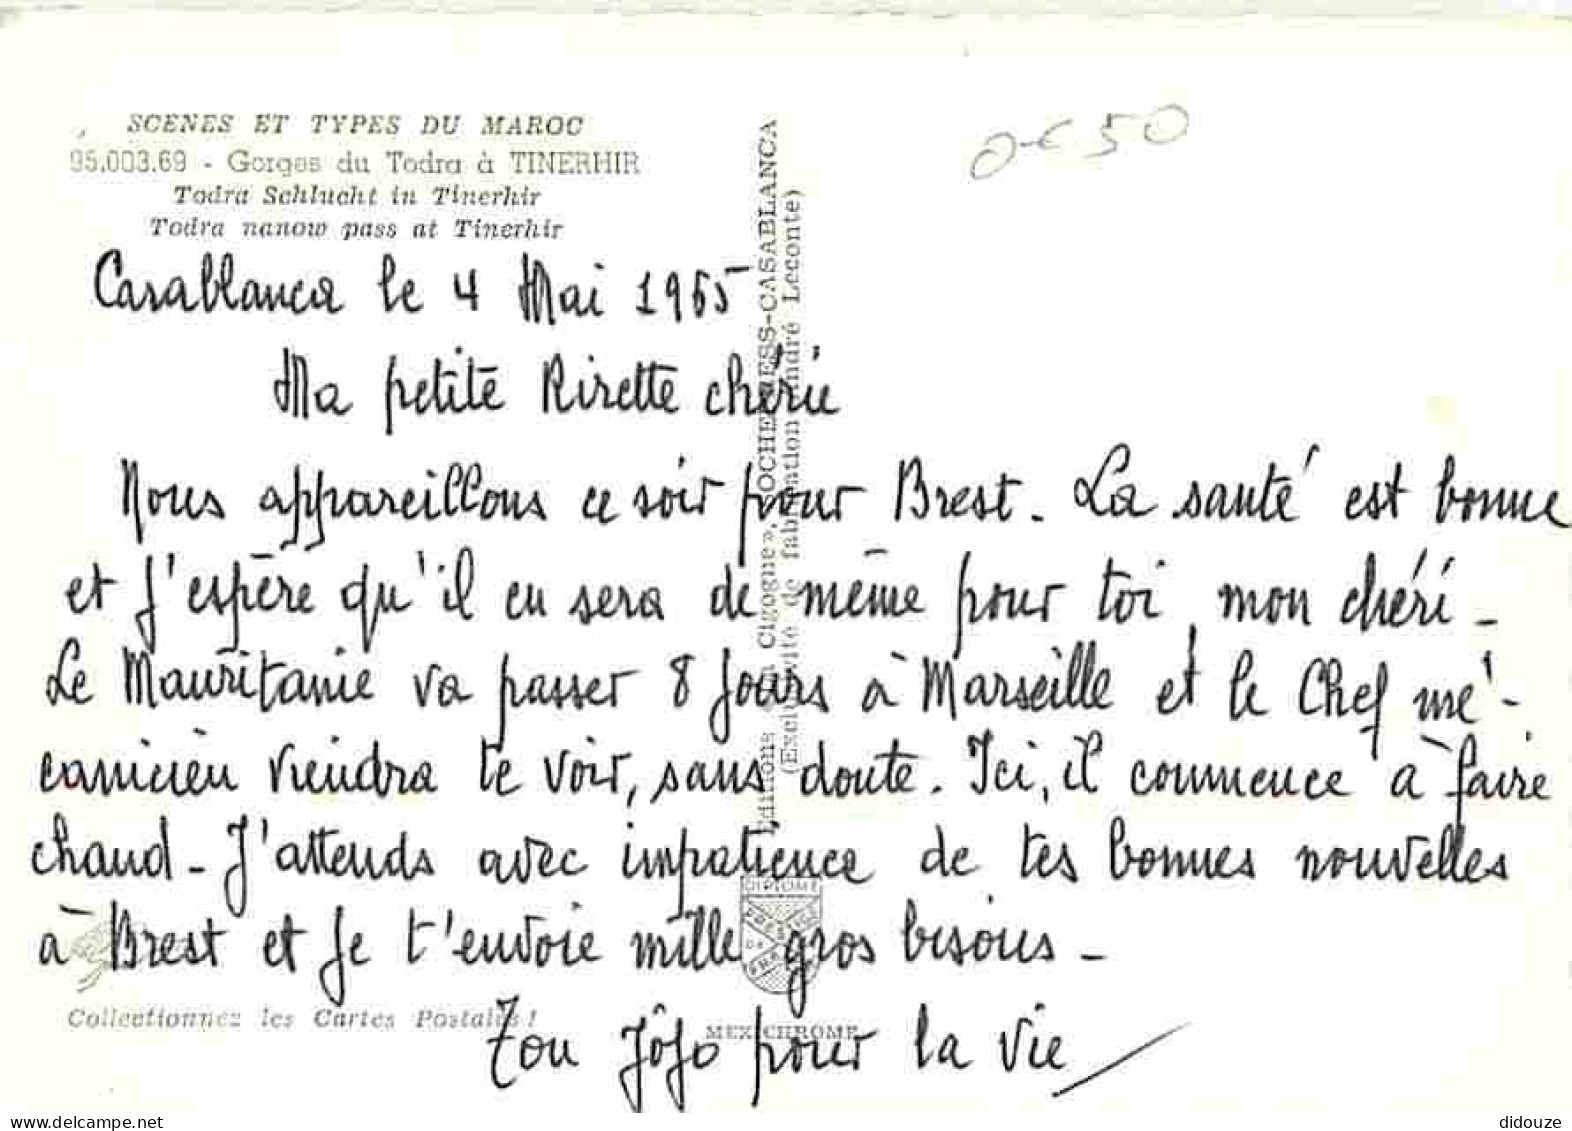 SCENES ET TYPES DU MAROC
95.003.69 - Gorges du Todra à TINERHIR
Todra Schlucht in Tinerhir
Todra nanow pass at Tinerhir
0€50
Casablanca le 4 Mai 1965
Ma petite Rirette chérie
Nous appareillons ce soir pour Brest. La santé est bonne
et j'espère qu'il en sera de même pour toi mon chéri.
Le Mauritanie va passer 8 jours à Marseille et le Chef mé-
canicien viendra te voir, sans doute. Ici, il commence à faire
chaud. J'attends avec impatience de tes bonnes nouvelles
à Brest et je t'envoie mille gros bisous.
Ton Jôjo pour la vie
Collectionnez les Cartes Postales !
Editions La Cigogne», HESS-CASABLANCA
(Exclusivité de fabrication André Leconte)
DIPLOME
PRESTIGE
DE
FRANCE
MEXICHROME
didouze